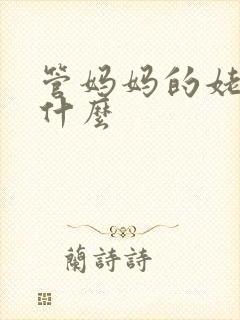 管妈妈的姥
什麼
蘭詩詩